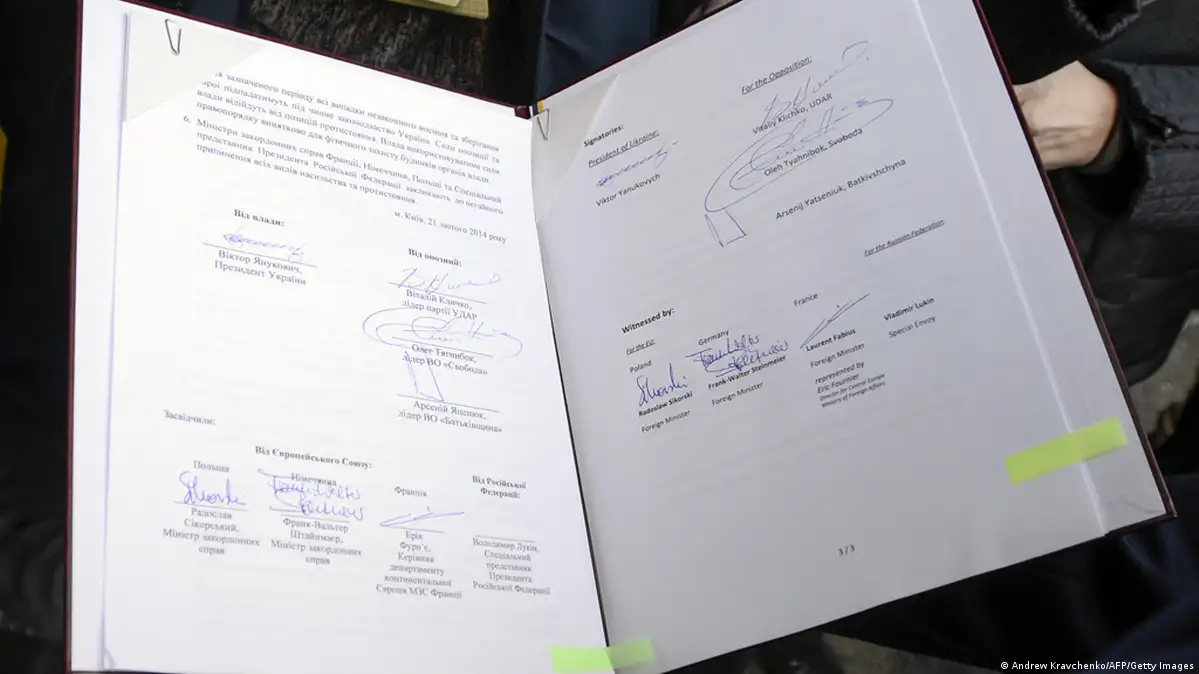 зазначеного періоду всі випадки незаконного носіння та зберігання
зброї підпадатимуть під чинне законодавство України. Сили опозиції та
влади відійдуть від позицій протистояння. Влада використовуватиме сили
правопорядку винятково для фізичного захисту будинків органів влади.
6. Міністри закордонних справ Франції, Німеччини, Польщі та Спеціальний
представник Президента Російської Федерації закликають до негайного
припинення всіх видів насильства та протистояння.
м. Київ, 21 лютого 2014 року
Від влади:
Віктор Янукович,
Президент України
Від опозиції:
Віталій Кличко,
лідер партії УДАР
Олег Тягнибок,
лідер ВО «Свобода»
Арсеній Яценюк,
лідер ВО «Батьківщина»
Засвідчили:
Від Європейського Союзу:
Польща
Радослав
Сікорський,
Міністр закордонних
справ
Німеччина
Франк-Вальтер
Штайнмаєр,
Міністр закордонних
справ
Франція
Ерік
Фурн`є,
Керівник
департаменту
континентальної
Європи МЗС Франції
Від Російської
Федерації:
Володимир Лукін,
Спеціальний
представник
Президента
Російської Федерації
Signatories:
President of Ukraine:
Viktor Yanukovych
For the Opposition:
Vitaliy Klichko, UDAR
Oleh Tyahnibok, Svoboda
Arsenij Yatseniuk, Batkivshchyna
Witnessed by:
For the EU:
Poland
Radoslaw Sikorski
Foreign Minister
Germany
Frank-Walter Steinmeier
Foreign Minister
France
Laurent Fabius
Foreign Minister
represented by
Eric Fournier
Director for Central Europe
Ministry of Foreign Affairs
For the Russian Federation
Vladimir Lukin
Special Envoy
3/3
© Andrew Kravchenko/AFP/Getty Images